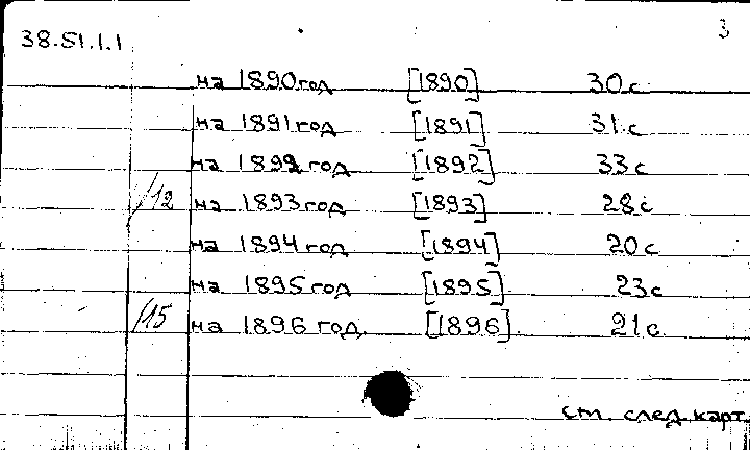 3
38.51.1.1
на 1890 год [1890] 30 с
на 1891 год [1891] 31 с
на 1892 год [1892] 33 с
/12 на 1893 год [1893] 28 с
на 1894 год [1894] 20 с
на 1895 год [1895] 23 с
/15 на 1896 год. [1896] 21 с
см. след. карт.